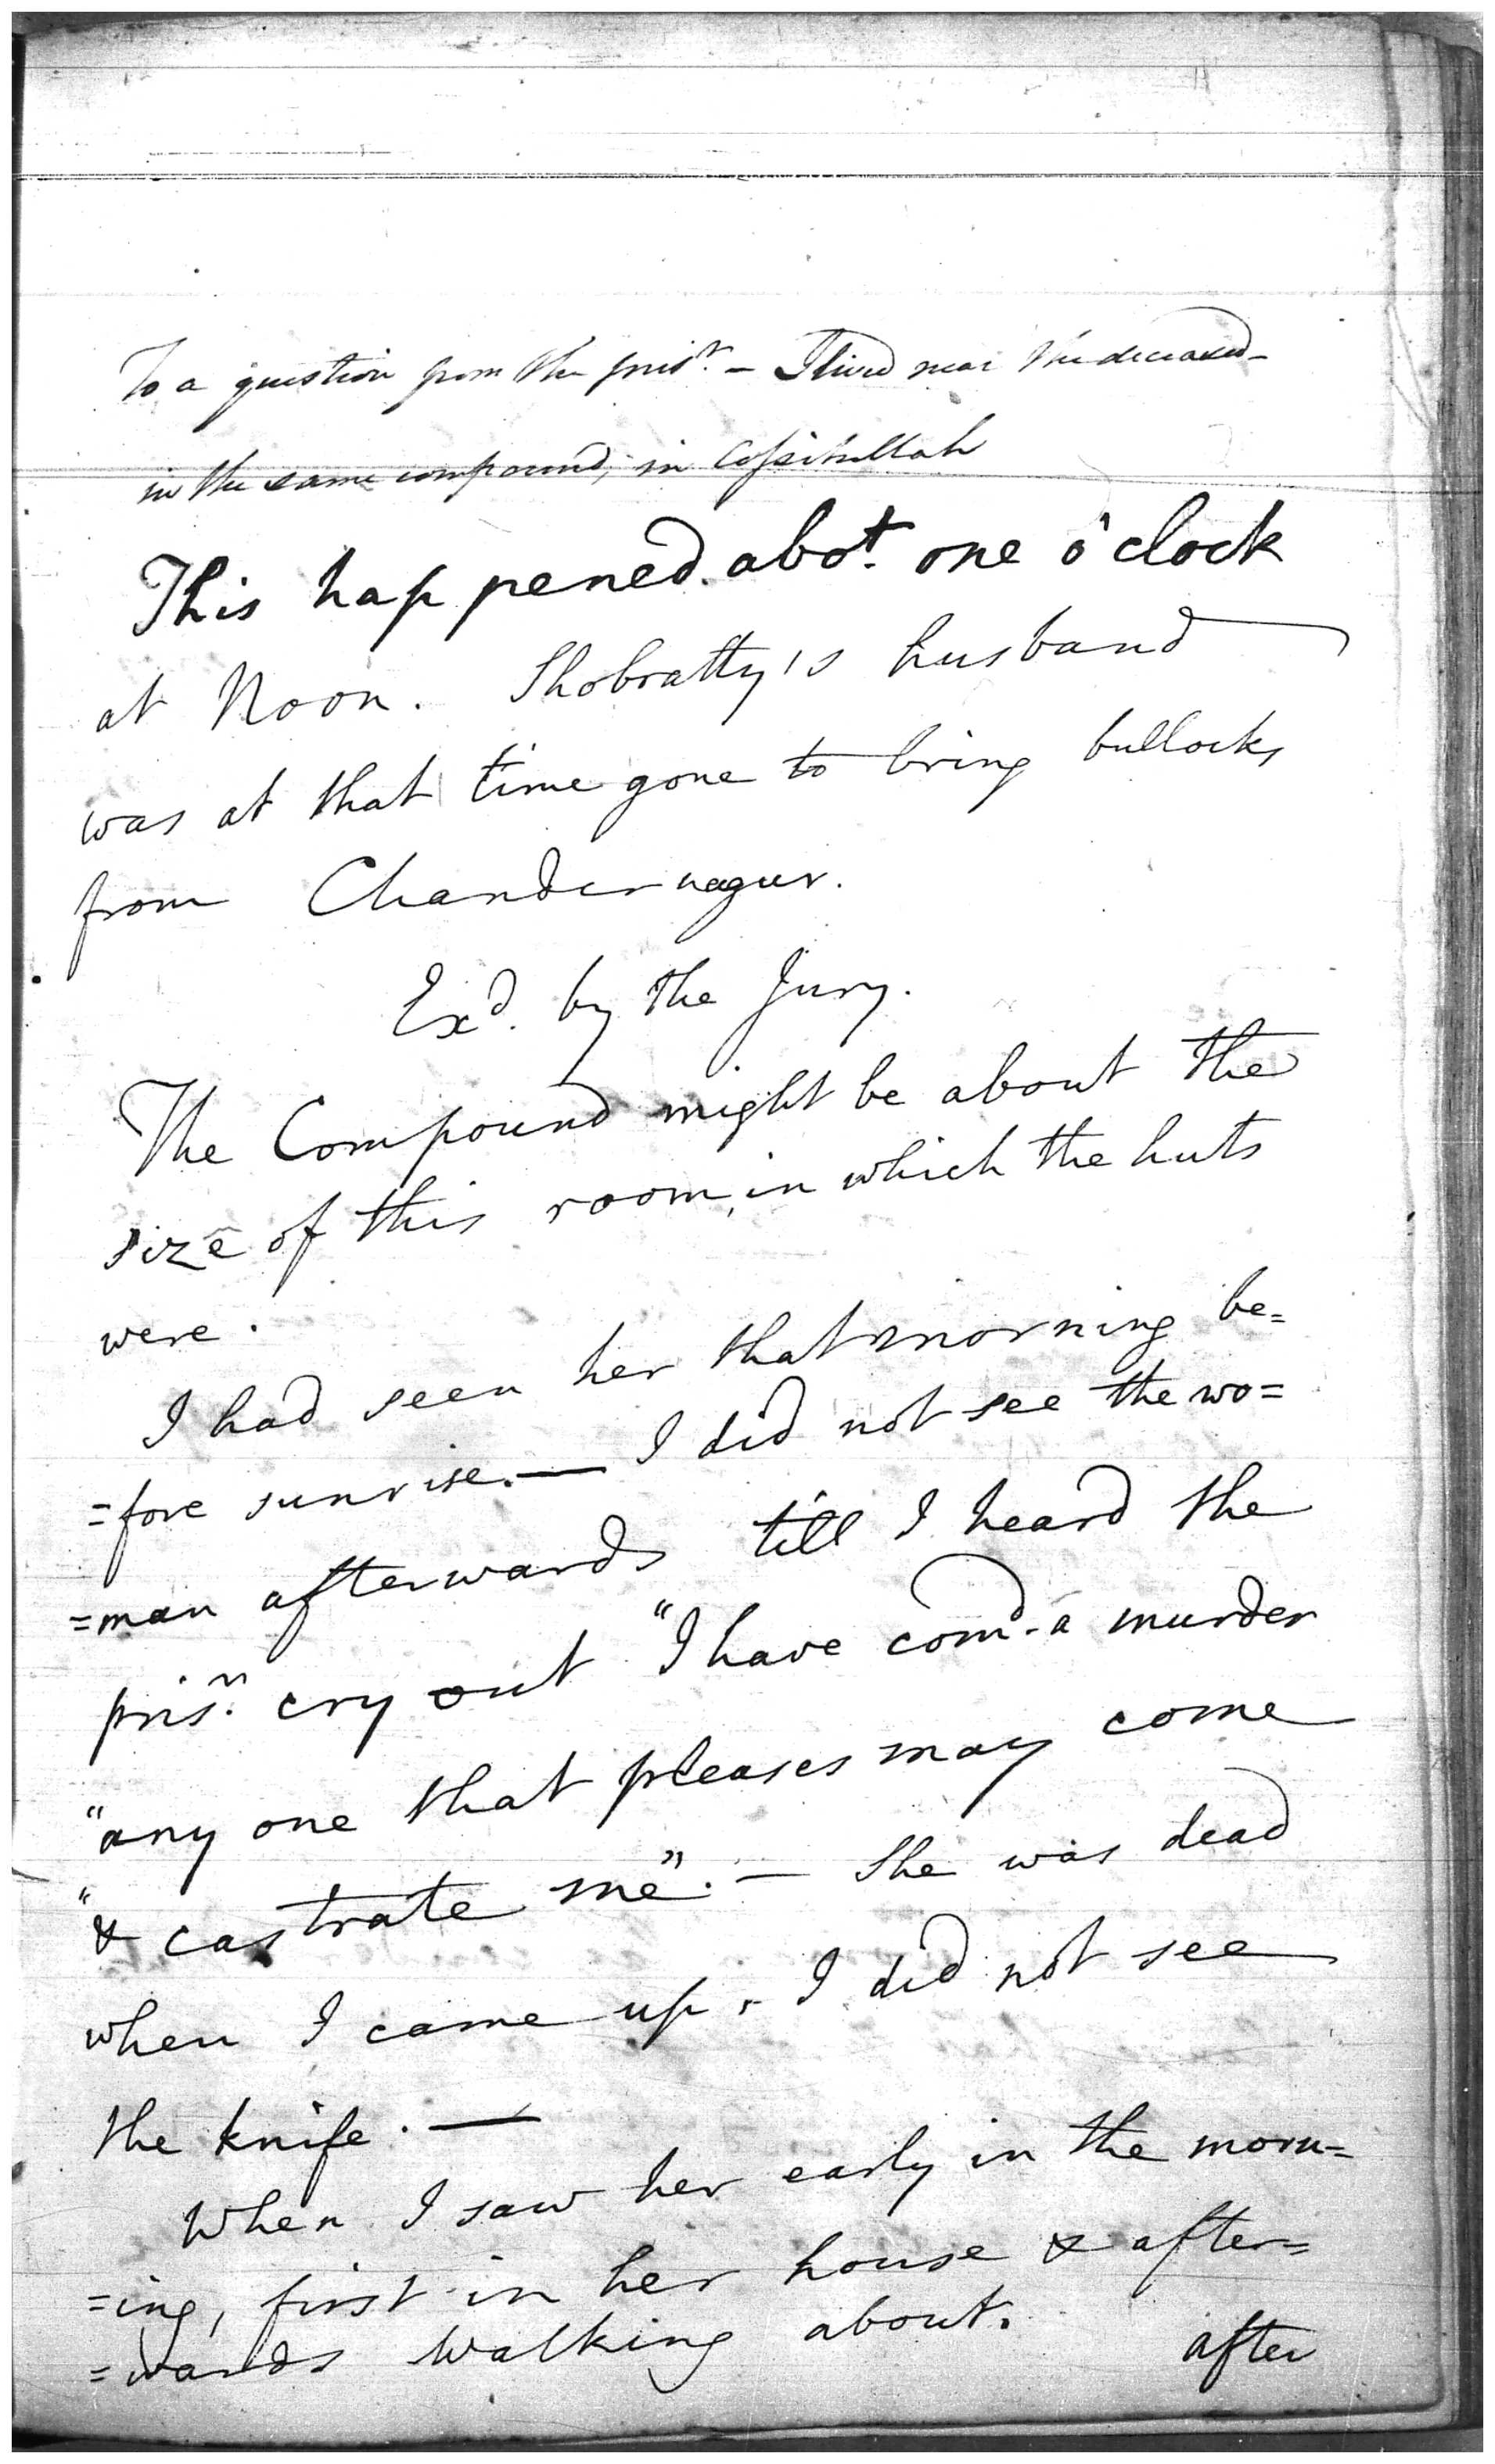 To a question from the prisr. – I lived near the deceased
in the same compound, in Cossitullah
This happened abot. one o'clock
at Noon. Shobratty's husband
was at that time gone to bring bullocks
from Chandernagur.
Exd. by the Jury.
The Compound might be about the
size of this room, in which the huts
were.
I had seen her that morning be=
=fore sunrise. — I did not see the wo=
=man afterwards till I heard the
prisr. cry out "I have comd. a murder
"any one that pleases may come
"& castrate me". — She was dead
when I came up. – I did not see
the knife. —
When I saw her early in the morn=
=ing, first in her house & after=
=wards walking about.
after